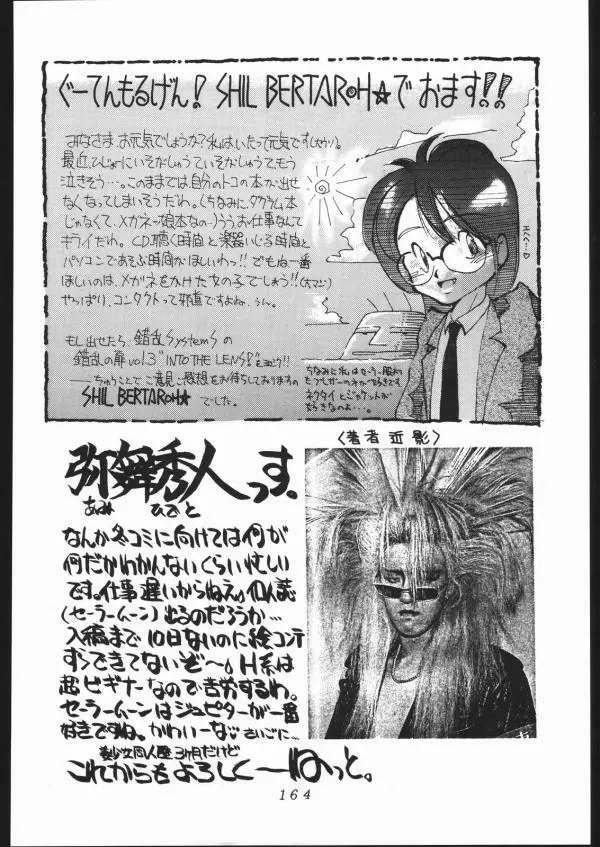 ぐーてんもるげん! SHIL BERTAROH☆でおます!!
みなさま お元気でしょうか?私はいたって元気です(大ウソ)。
最近、ひじょーにいそがしゅうていそがしゅうて、もう
泣きそう…。このままでは自分のトコの本が出せ
なくなってしまいそうだわ。(ちなみに、タクラム本
じゃなくて、メガネっ娘本なの…)うう お仕事なんて
キライだわ。CD聴く時間と楽器いじる時間と
パソコンであそぶ時間がほしいわっ!!でもね一番
ほしいのは、メガネをかけた女の子でしょう!!(大マジ)
やっぱり、コンタクトって邪道ですよね、うん。
エヘヘ…♡
もし出せたら、錯乱SystemSの
錯乱の扉 vol.3 "INTO THE LENS"をヨロシク!!
——ちゅうことでご意見ご感想をお待ちしておりますの
SHIL BERTAROH☆でした。
ちなみに私はセーラー服より
もブレザーの方が好きです
ネクタイとジャケットが
好きなのよ…。
弥舞秀人っす。
あみ ひでと
〈著者近影〉
なんか冬コミに向けては何が
何だかわかんないくらい忙しい
です。仕事遅いからねえ。個人誌
(セーラームーン)出るのだろうか…
入稿まで10日ないのに絵コンテ
すらできてないぞ〜。H系は
超ビギナーなので苦労するわ。
セーラームーンはジュピターが一番
好きですね。かわいーな。さいごに…
美少女同人歴3ヶ月だけど
これからもよろしく〜ねっと。
164